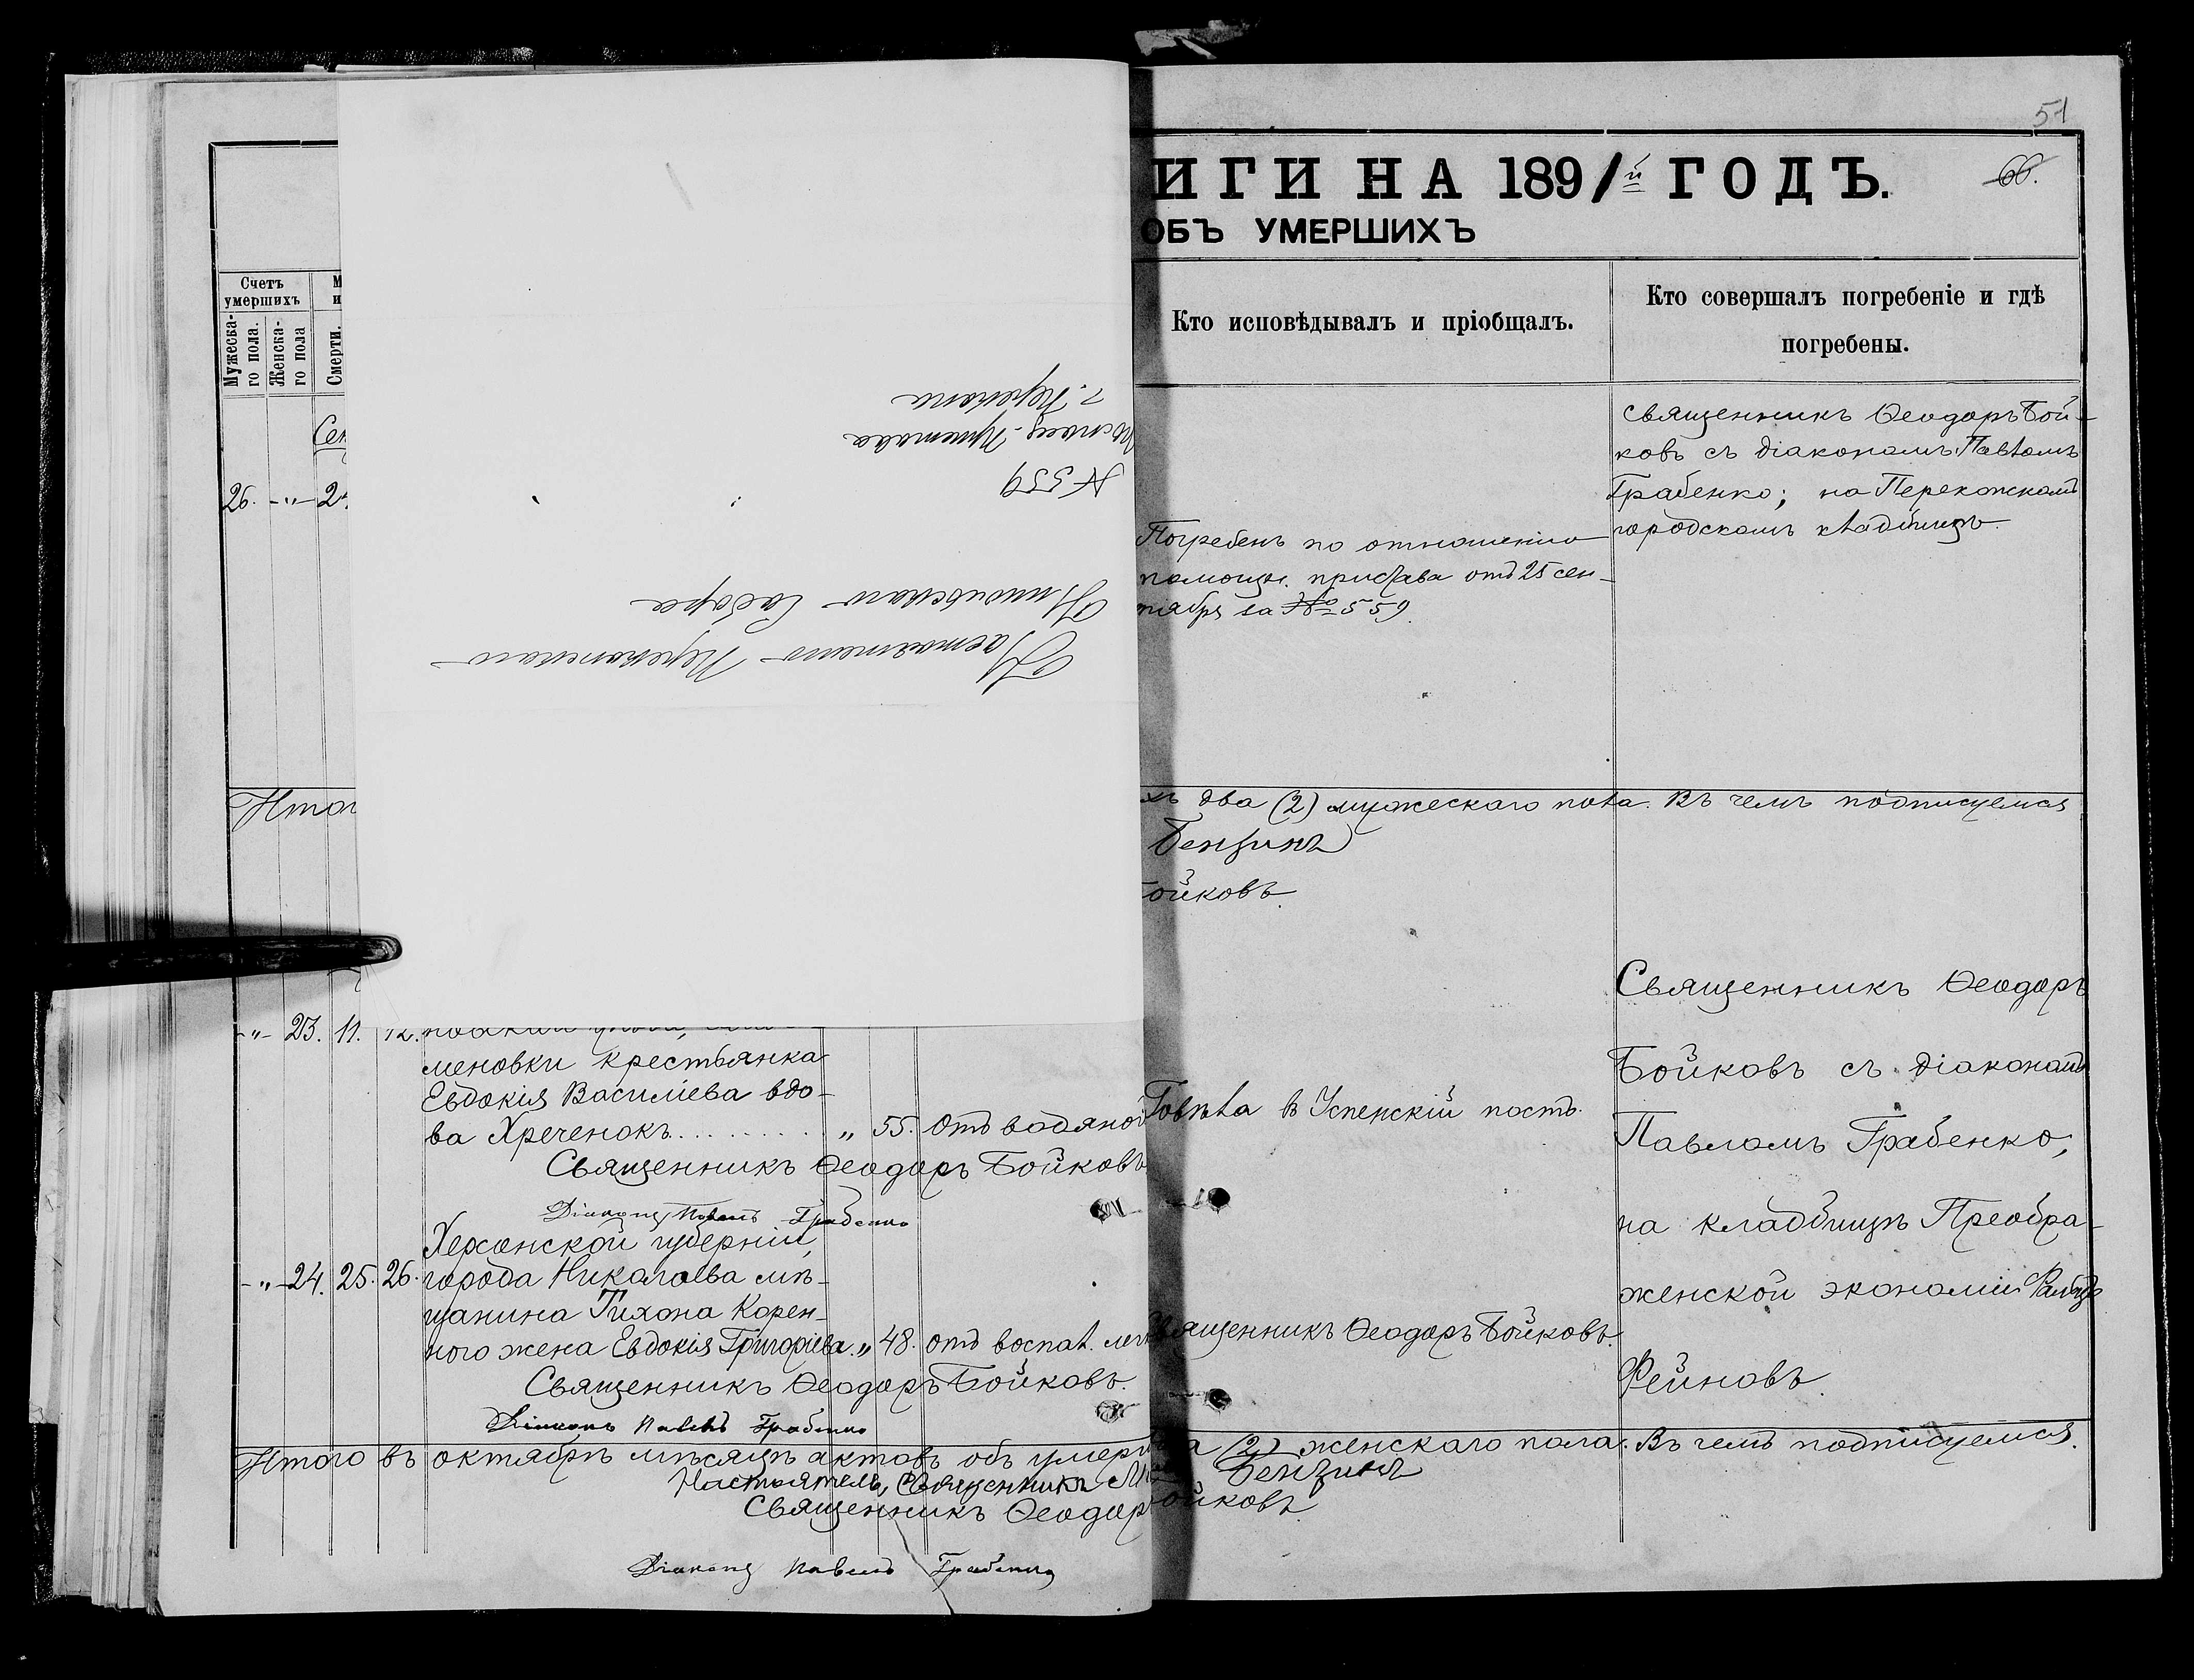 51
ИГИ НА 1891й ГОДЪ.
66.
ОБЪ УМЕРШИХЪ
Счетъ
умершихъ
М
и
Мужеска-
го пола.
Женска-
го пола
Смерти.
Кто исповѣдывалъ и пріобщалъ.
Кто совершалъ погребеніе и гдѣ
погребены.
Сен
26. -"- 2
Настоятелю Перекопскаго
Собора
№ 559
Помощ. Пристава
г. Перекопа
Погребенъ по отношенію
помощн. пристава отъ 25 сен-
тября за № 559.
Священникъ Ѳеодоръ Бой-
ковъ съ діакономъ Павломъ
Грабенко; на Перекопскомъ
городскомъ кладбищѣ.
Итог
хъ два (2) мужескаго пола. Въ чемъ подписуемся
Бензинъ
ойковъ.
-"- 23. 11. 12.
меновки крестьянка
Евдокія Василіева вдо-
ва Хреченокъ.......... " 55. Отъ водяной
Говѣла в Успенскій постъ.
Священникъ Ѳеодоръ Бойковъ
Діаконъ Павелъ Грабенко
Священникъ Ѳеодоръ
Бойковъ съ діакономъ
Павломъ Грабенко;
на кладбищѣ Преобра-
женской экономіи Фальцъ
Фейновъ.
Херсонской губерніи,
-"- 24. 25. 26. города Николаева мѣ-
щанина Тихона Корен-
ного жена Евдокія Григоріева. " 48. отъ воспал. лег
Священникъ Ѳеодоръ Бойковъ.
Священникъ Ѳеодоръ Бойковъ.
Діаконъ Павелъ Грабенко
Итого въ октябрѣ мѣсяцѣ актовъ объ умерш а (2) женскаго пола. Въ чемъ подписуемся.
Настоятель, Священникъ М Бензинъ
Священникъ Ѳеодоръ ойковъ
Діаконъ Павелъ Грабенко